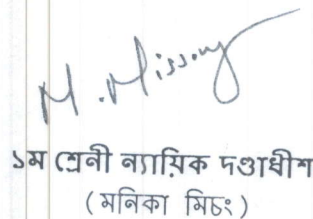 M. Missong
১ম শ্রেনী ন্যায়িক দণ্ডাধীশ
( মনিকা মিচং )